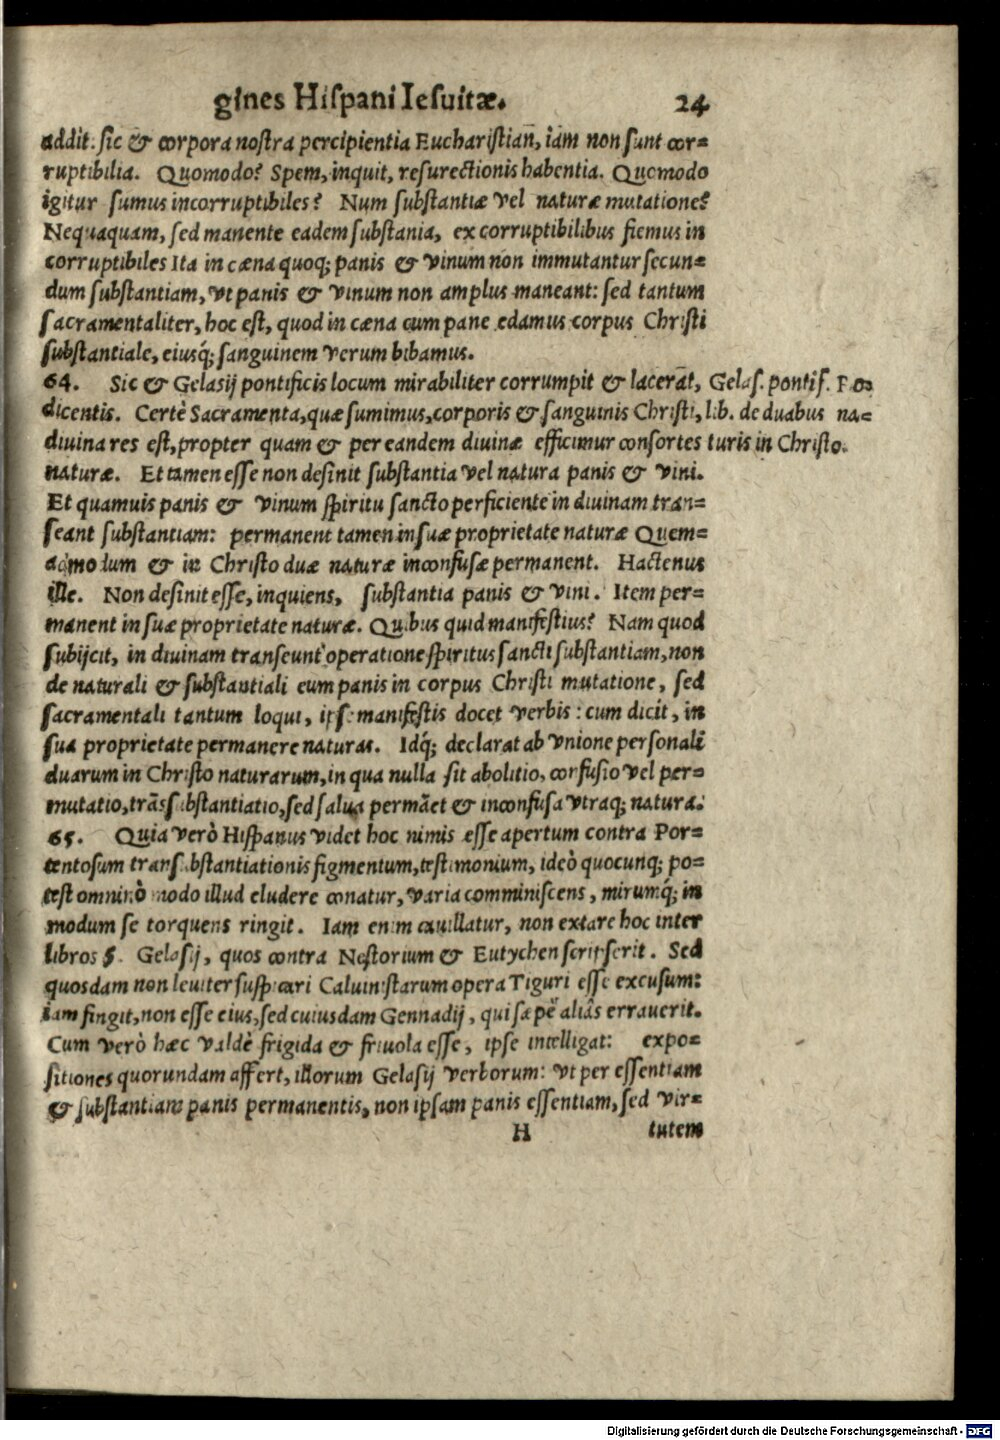 gines Hiſpani Ieſuitæ. 24
addit. ſic & corpora noſtra percipientia Euchariſtiañ, iam non ſunt cor=
ruptibilia. Quomodo? Spem, inquit, reſurectionis habentia. Quomodo
igitur ſumus incorruptibiles? Num ſubſtantiæ vel naturæ mutatione?
Nequaquam, ſed manente eadem ſubſtania, ex corruptibilibus fiemus in
corruptibiles Ita in cæna quoq; panis & vinum non immutantur ſecun=
dum ſubſtantiam, vt panis & vinum non amplus maneant: ſed tantum
ſacramentaliter, hoc eſt, quod in cæna cum pane edamus corpus Chriſti
ſubſtantiale, eiusq́; ſanguinem verum bibamus.
64. Sic & Gelaſij pontificis locum mirabiliter corrumpit & lacerāt,
Gelaſ. pontif. Ro
dicentis. Certè Sacramenta, quæ ſumimus, corporis & ſanguinis Chriſti,
lib. de duabus na=
diuina res eſt, propter quam & per eandem diuinæ efficimur conſortes
turis in Chriſto.
naturæ. Et tamen eſſe non deſinit ſubſtantia vel natura panis & vini.
Et quamuis panis & vinum ſpiritu ſancto perficiente in diuinam tran=
ſeant ſubſtantiam: permanent tamen in ſuæ proprietate naturæ Quem=
admodum & in Chriſto duæ naturæ inconfuſæ permanent. Hactenus
ille. Non deſinit eſſe, inquiens, ſubſtantia panis & vini. Item per=
manent in ſuæ proprietate naturæ. Quibus quid manifeſtius? Nam quod
ſubijcit, in diuinam tranſeunt operatione ſpiritus ſancti ſubſtantiam, non
de naturali & ſubſtantiali eum panis in corpus Chriſti mutatione, ſed
ſacramentali tantum loqui, ipſe manifeſtis docet verbis: cum dicit, in
ſua proprietate permanere naturas. Idq́; declarat ab vnione perſonali
duarum in Chriſto naturarum, in qua nulla ſit abolitio, confuſio vel per=
mutatio, trāsſubſtantiatio, ſed ſalua permāet & inconfuſa vtraq; natura.
65. Quia verò Hiſpanus videt hoc nimis eſſe apertum contra Por=
tentoſum tranſubſtantiationis figmentum, teſtimonium, ideò quocunq; po=
teſt omninò modo illud eludere conatur, varia comminiſcens, mirumq́; in
modum ſe torquens ringit. Iam enim cauillatur, non extare hoc inter
libros S. Gelaſij, quos contra Neſtorium & Eutychen ſcripſerit. Sed
quosdam non leuiter ſuſpicari Caluiniſtarum opera Tiguri eſſe excuſum:
iam fingit, non eſſe eius, ſed cuiusdam Gennadij, qui ſæpè aliâs errauerit.
Cum verò hæc valdè frigida & friuola eſſe, ipſe intelligat: expo=
ſitiones quorundam affert, illorum Gelaſij verborum: vt per eſſentiam
& ſubſtantiam panis permanentis, non ipſam panis eſſentiam, ſed vir=
H tutem
Digitalisierung gefördert durch die Deutsche Forschungsgemeinschaft - DFG